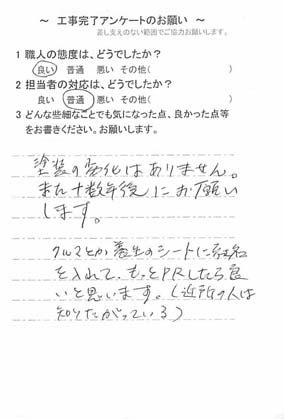 ～ 工事完了アンケートのお願い ～
差し支えのない範囲でご協力お願いします。
1 職人の態度は、どうでしたか？
良い 普通 悪い その他( )
2 担当者の対応は、どうでしたか？
良い 普通 悪い その他( )
3 どんな些細なことでも気になった点、良かった点等
をお書きください。お願いします。
塗装の劣化はありません。
また十数年後にお願い
します。
クルマとか養生のシートに社名
を入れて、もっとPRしたら良
いと思います。(近所の人は
知りたがっている)